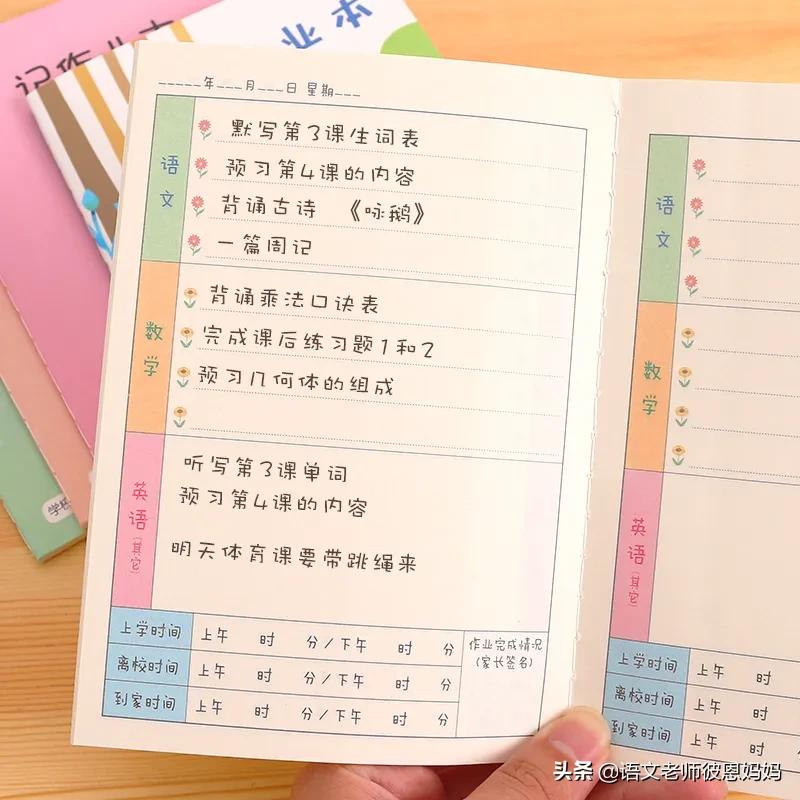 记作业本
业本
_____年___月___日 星期___
语文
默写第3课生词表
预习第4课的内容
背诵古诗 《咏鹅》
一篇周记
数学
背诵乘法口诀表
完成课后练习题1和2
预习几何体的组成
英语(其它)
听写第3课单词
预习第4课的内容
明天体育课要带跳绳来
上学时间 上午 时 分/下午 时 分
离校时间 上午 时 分/下午 时 分
到家时间 上午 时 分/下午 时 分
作业完成情况
(家长签名)
语文
数学
英语(其它)
上学时间 上午 时
离校时间 上午 时
到家时间 上午 时
头条 @语文老师彼恩妈妈